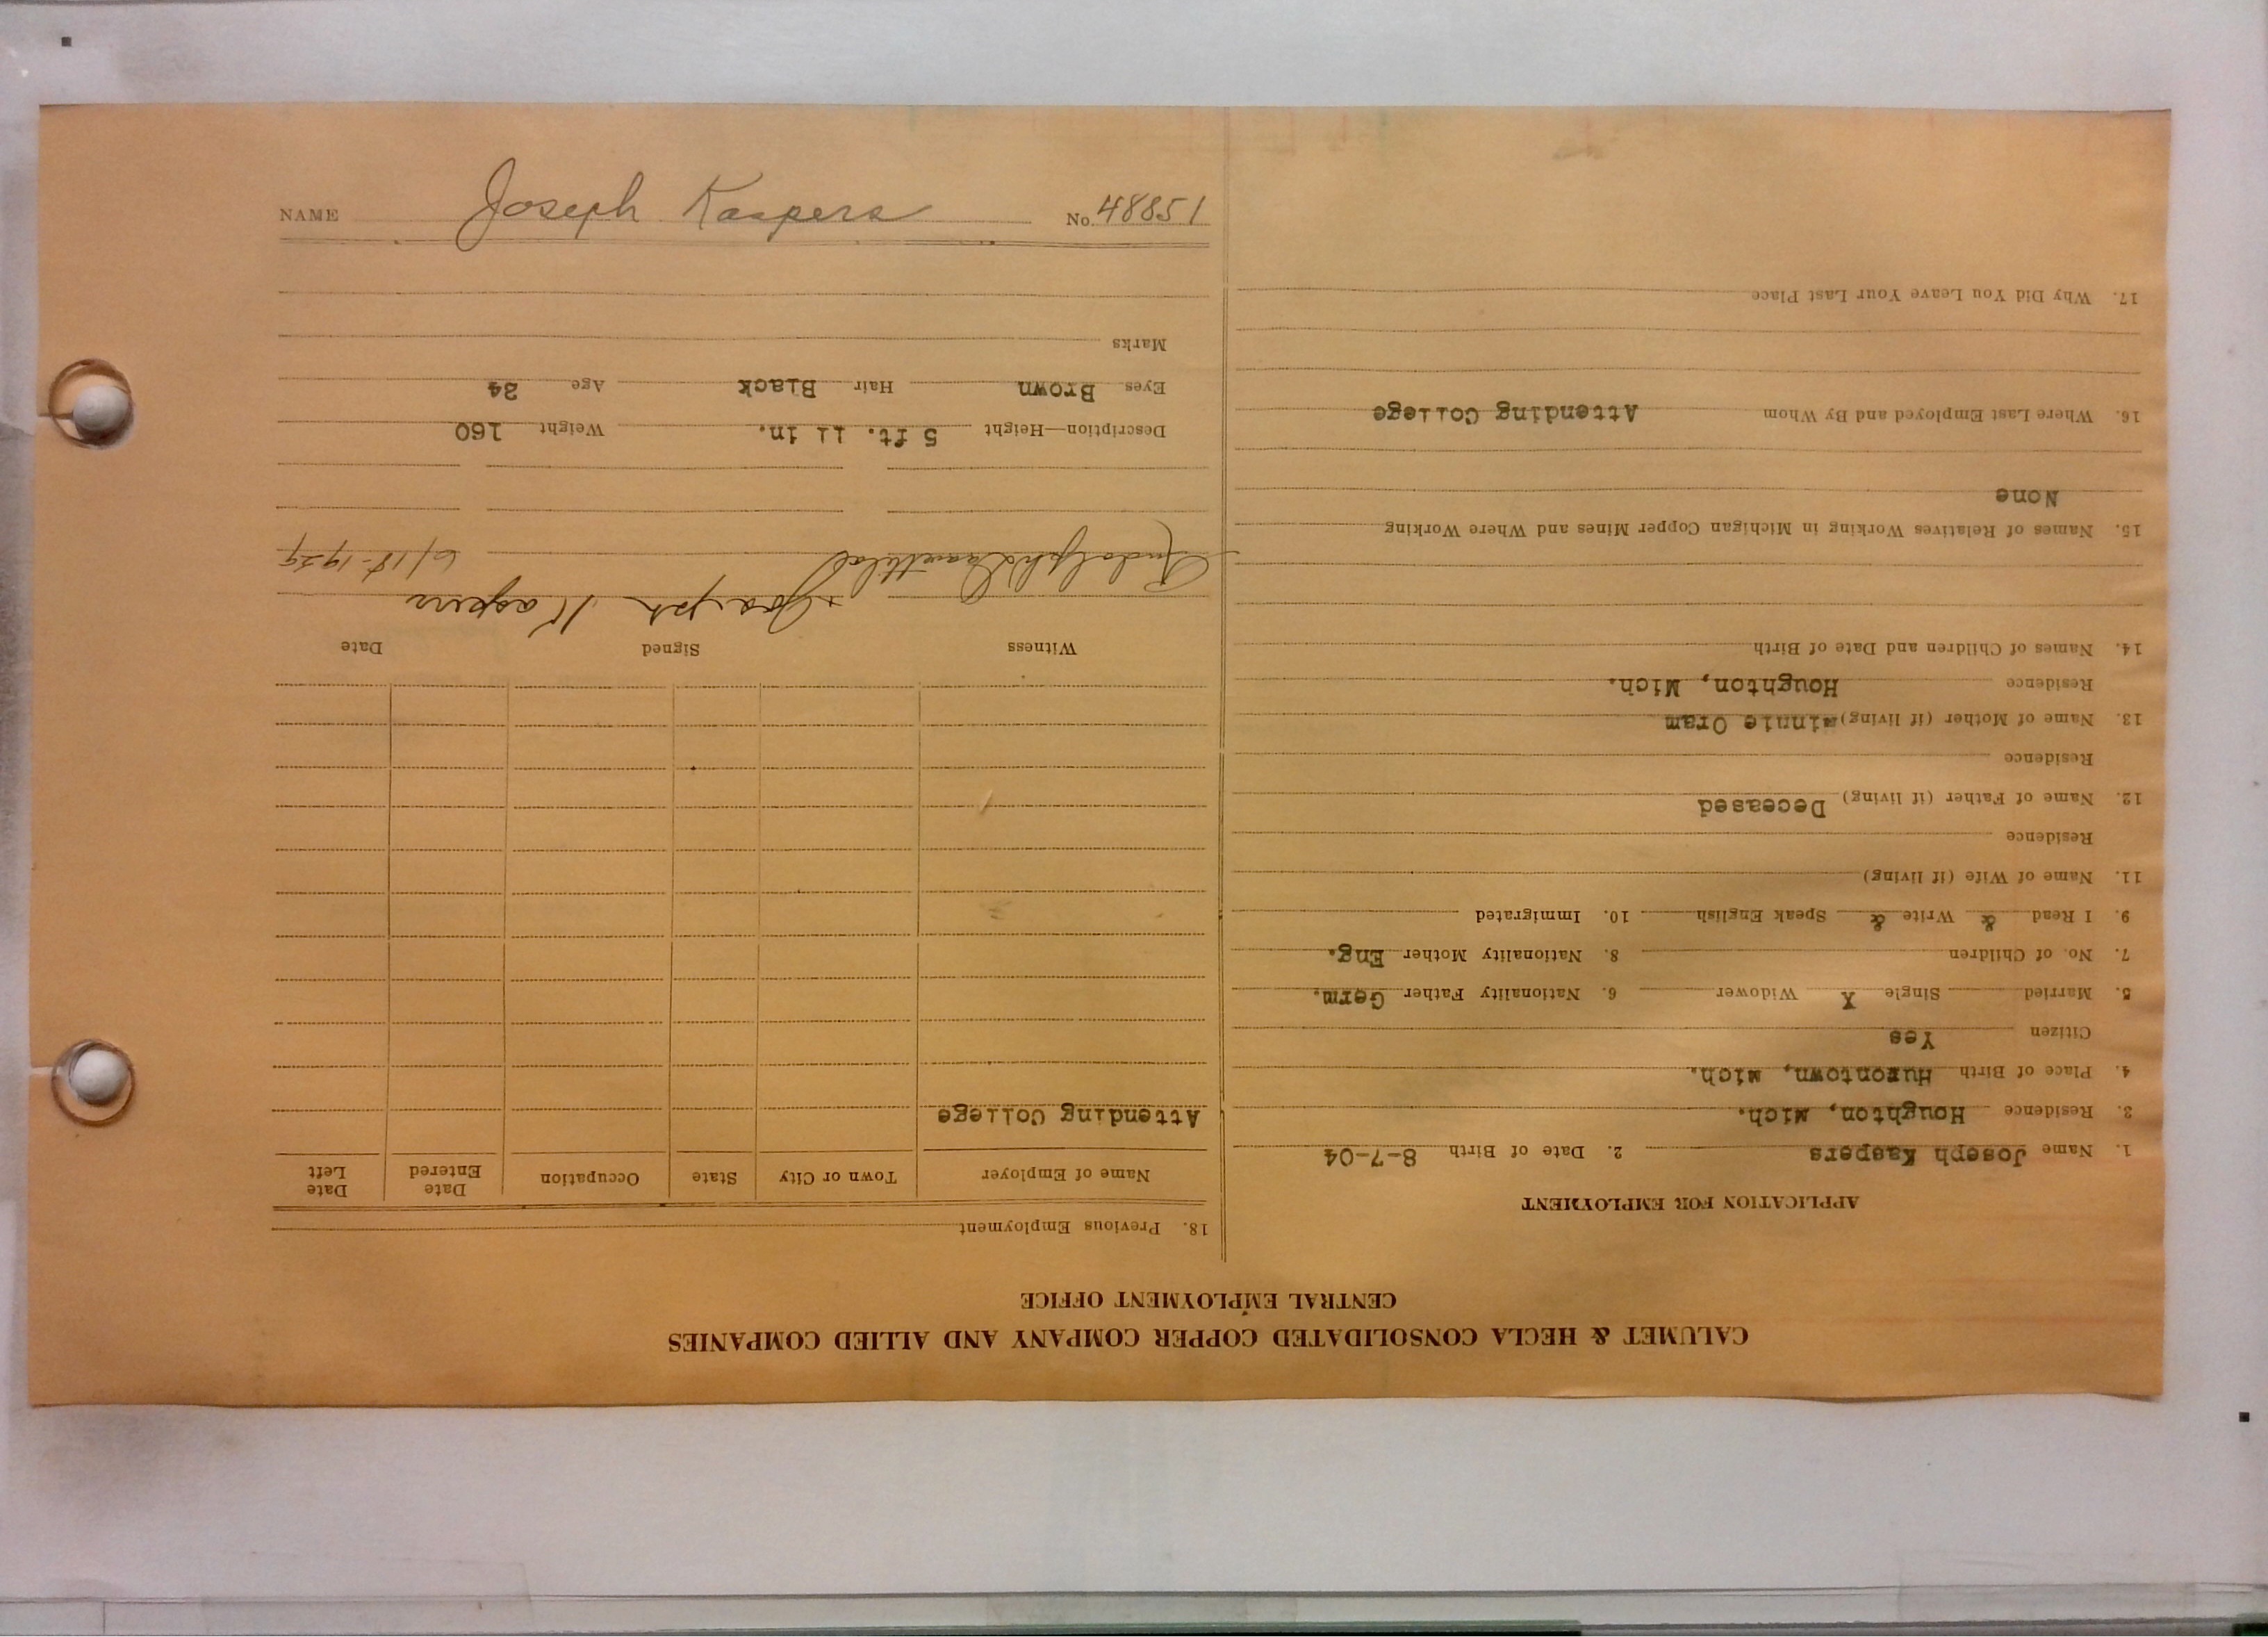 NAME Joseph Kaspers No. 48851
CALUMET & HECLA CONSOLIDATED COPPER COMPANY AND ALLIED COMPANIES
CENTRAL EMPLOYMENT OFFICE
APPLICATION FOR EMPLOYMENT
1. Name Joseph Kaspers 2. Date of Birth 8-7-04
3. Residence Houghton, Mich.
4. Place of Birth Hurontown, Mich.
Citizen Yes
5. Married Single X Widower 6. Nationality Father Germ.
7. No. of Children 8. Nationality Mother Eng.
9. I Read & Write & Speak English 10. Immigrated
11. Name of Wife (if living)
Residence
12. Name of Father (if living) Deceased
Residence
13. Name of Mother (if living) Minnie Oram
Residence Houghton, Mich.
14. Names of Children and Date of Birth
15. Names of Relatives Working in Michigan Copper Mines and Where Working
None
16. Where Last Employed and By Whom Attending College
17. Why Did You Leave Your Last Place
18. Previous Employment
Name of Employer Town or City State Occupation Date Entered Date Left
Attending College
Witness Signed Date
x Joseph Kaspers
Rudolph
Description—Height 5 ft. 11 in. Weight 160
Eyes Brown Hair Black Age
Marks